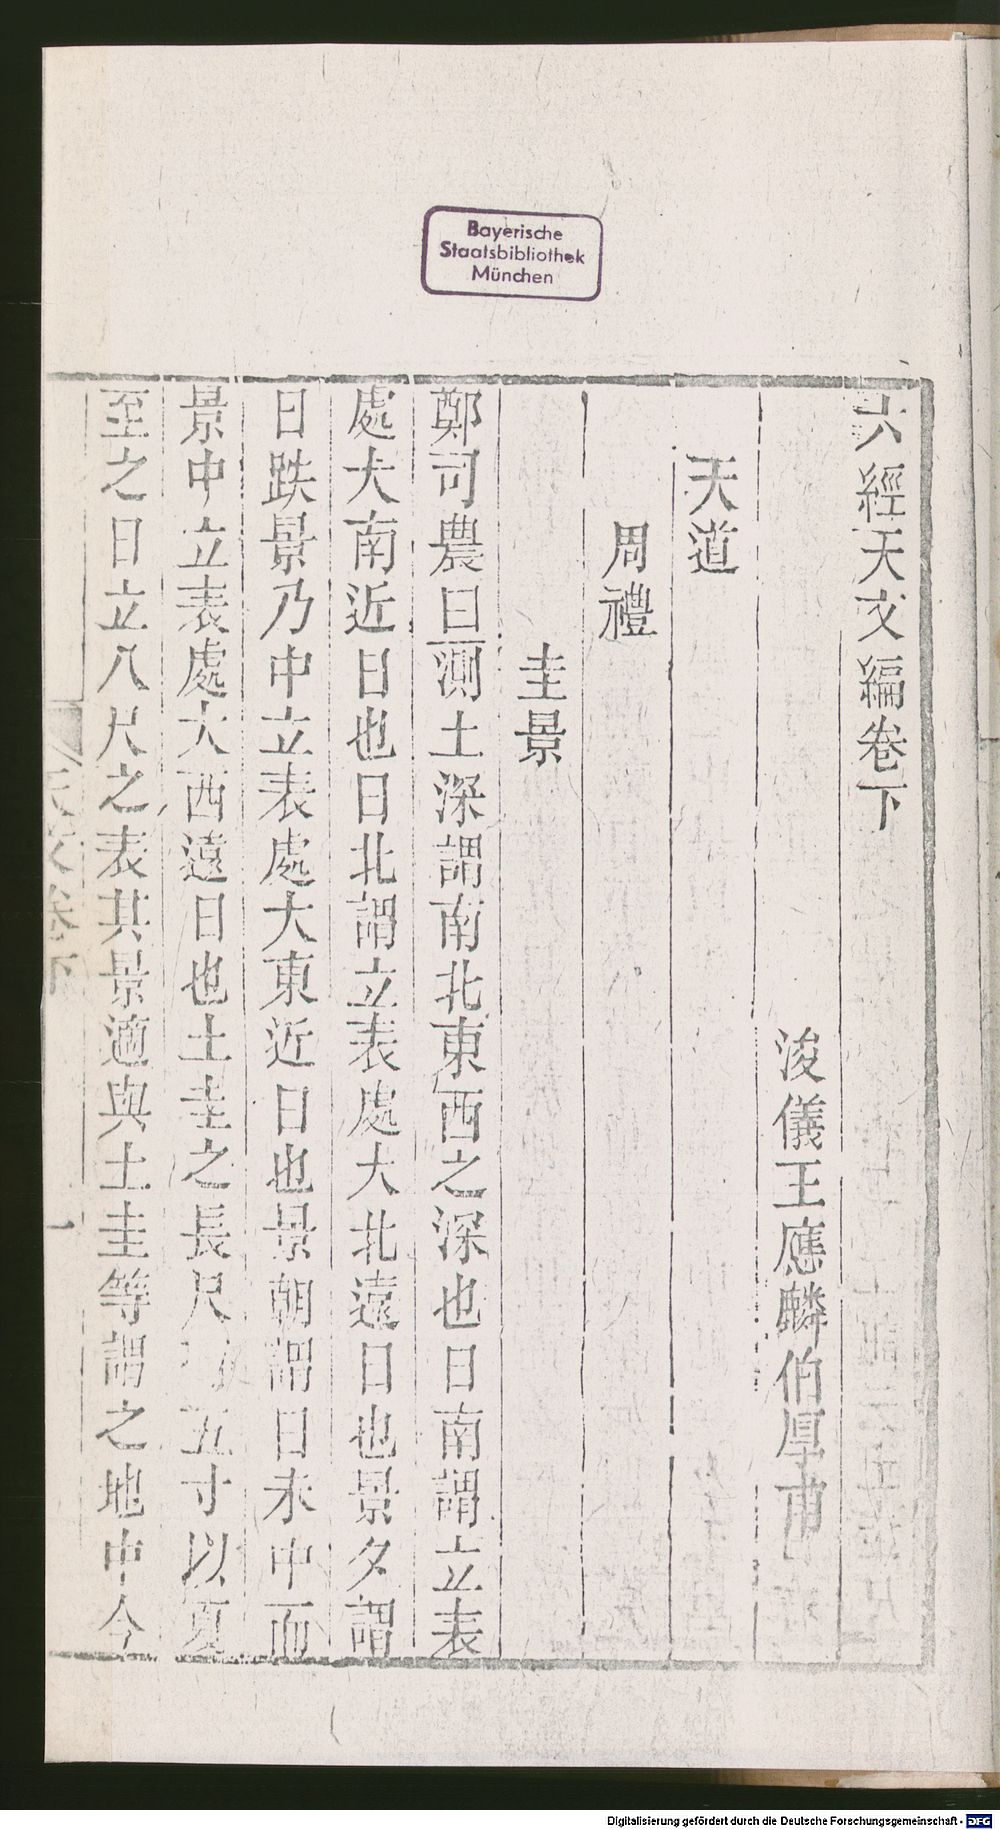 Bayerische
Staatsbibliothek
München
六經天文編卷下
浚儀王應麟伯厚甫
天道
周禮
圭景
鄭司農曰測土深謂南北東西之深也日南謂立表
處大南近日也日北謂立表處大北遠日也景夕謂
日跌景乃中立表處大東近日也景朝謂日未中而
景中立表處大西遠日也土圭之長尺有五寸以夏
至之日立八尺之表其景適與土圭等謂之地中今
一
Digitalisierung gefördert durch die Deutsche Forschungsgemeinschaft - DFG